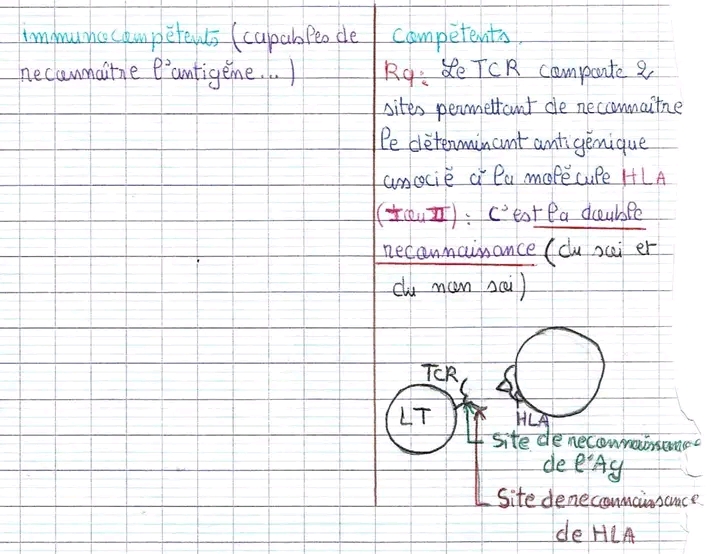 immunocompétents (capables de
reconnaître l'antigène...)
compétents.
Rq: Le TCR comporte 2
sites permettant de reconnaître
le déterminant antigénique
associé à la molécule HLA
(I ou II): C'est la double
reconnaissance (du soi et
du non soi)
TCR
LT
HLA
Site de reconnaissance
de l'Ag
Site de reconnaissance
de HLA